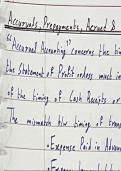 Accruals, Prepayments, Accrued &
"Accrual Accounting" concerns the tim
the Statement of Profit or loss must in
of the timing of Cash Receipts or
The mismatch b/w timing of trans
• Expense Paid in Advanc